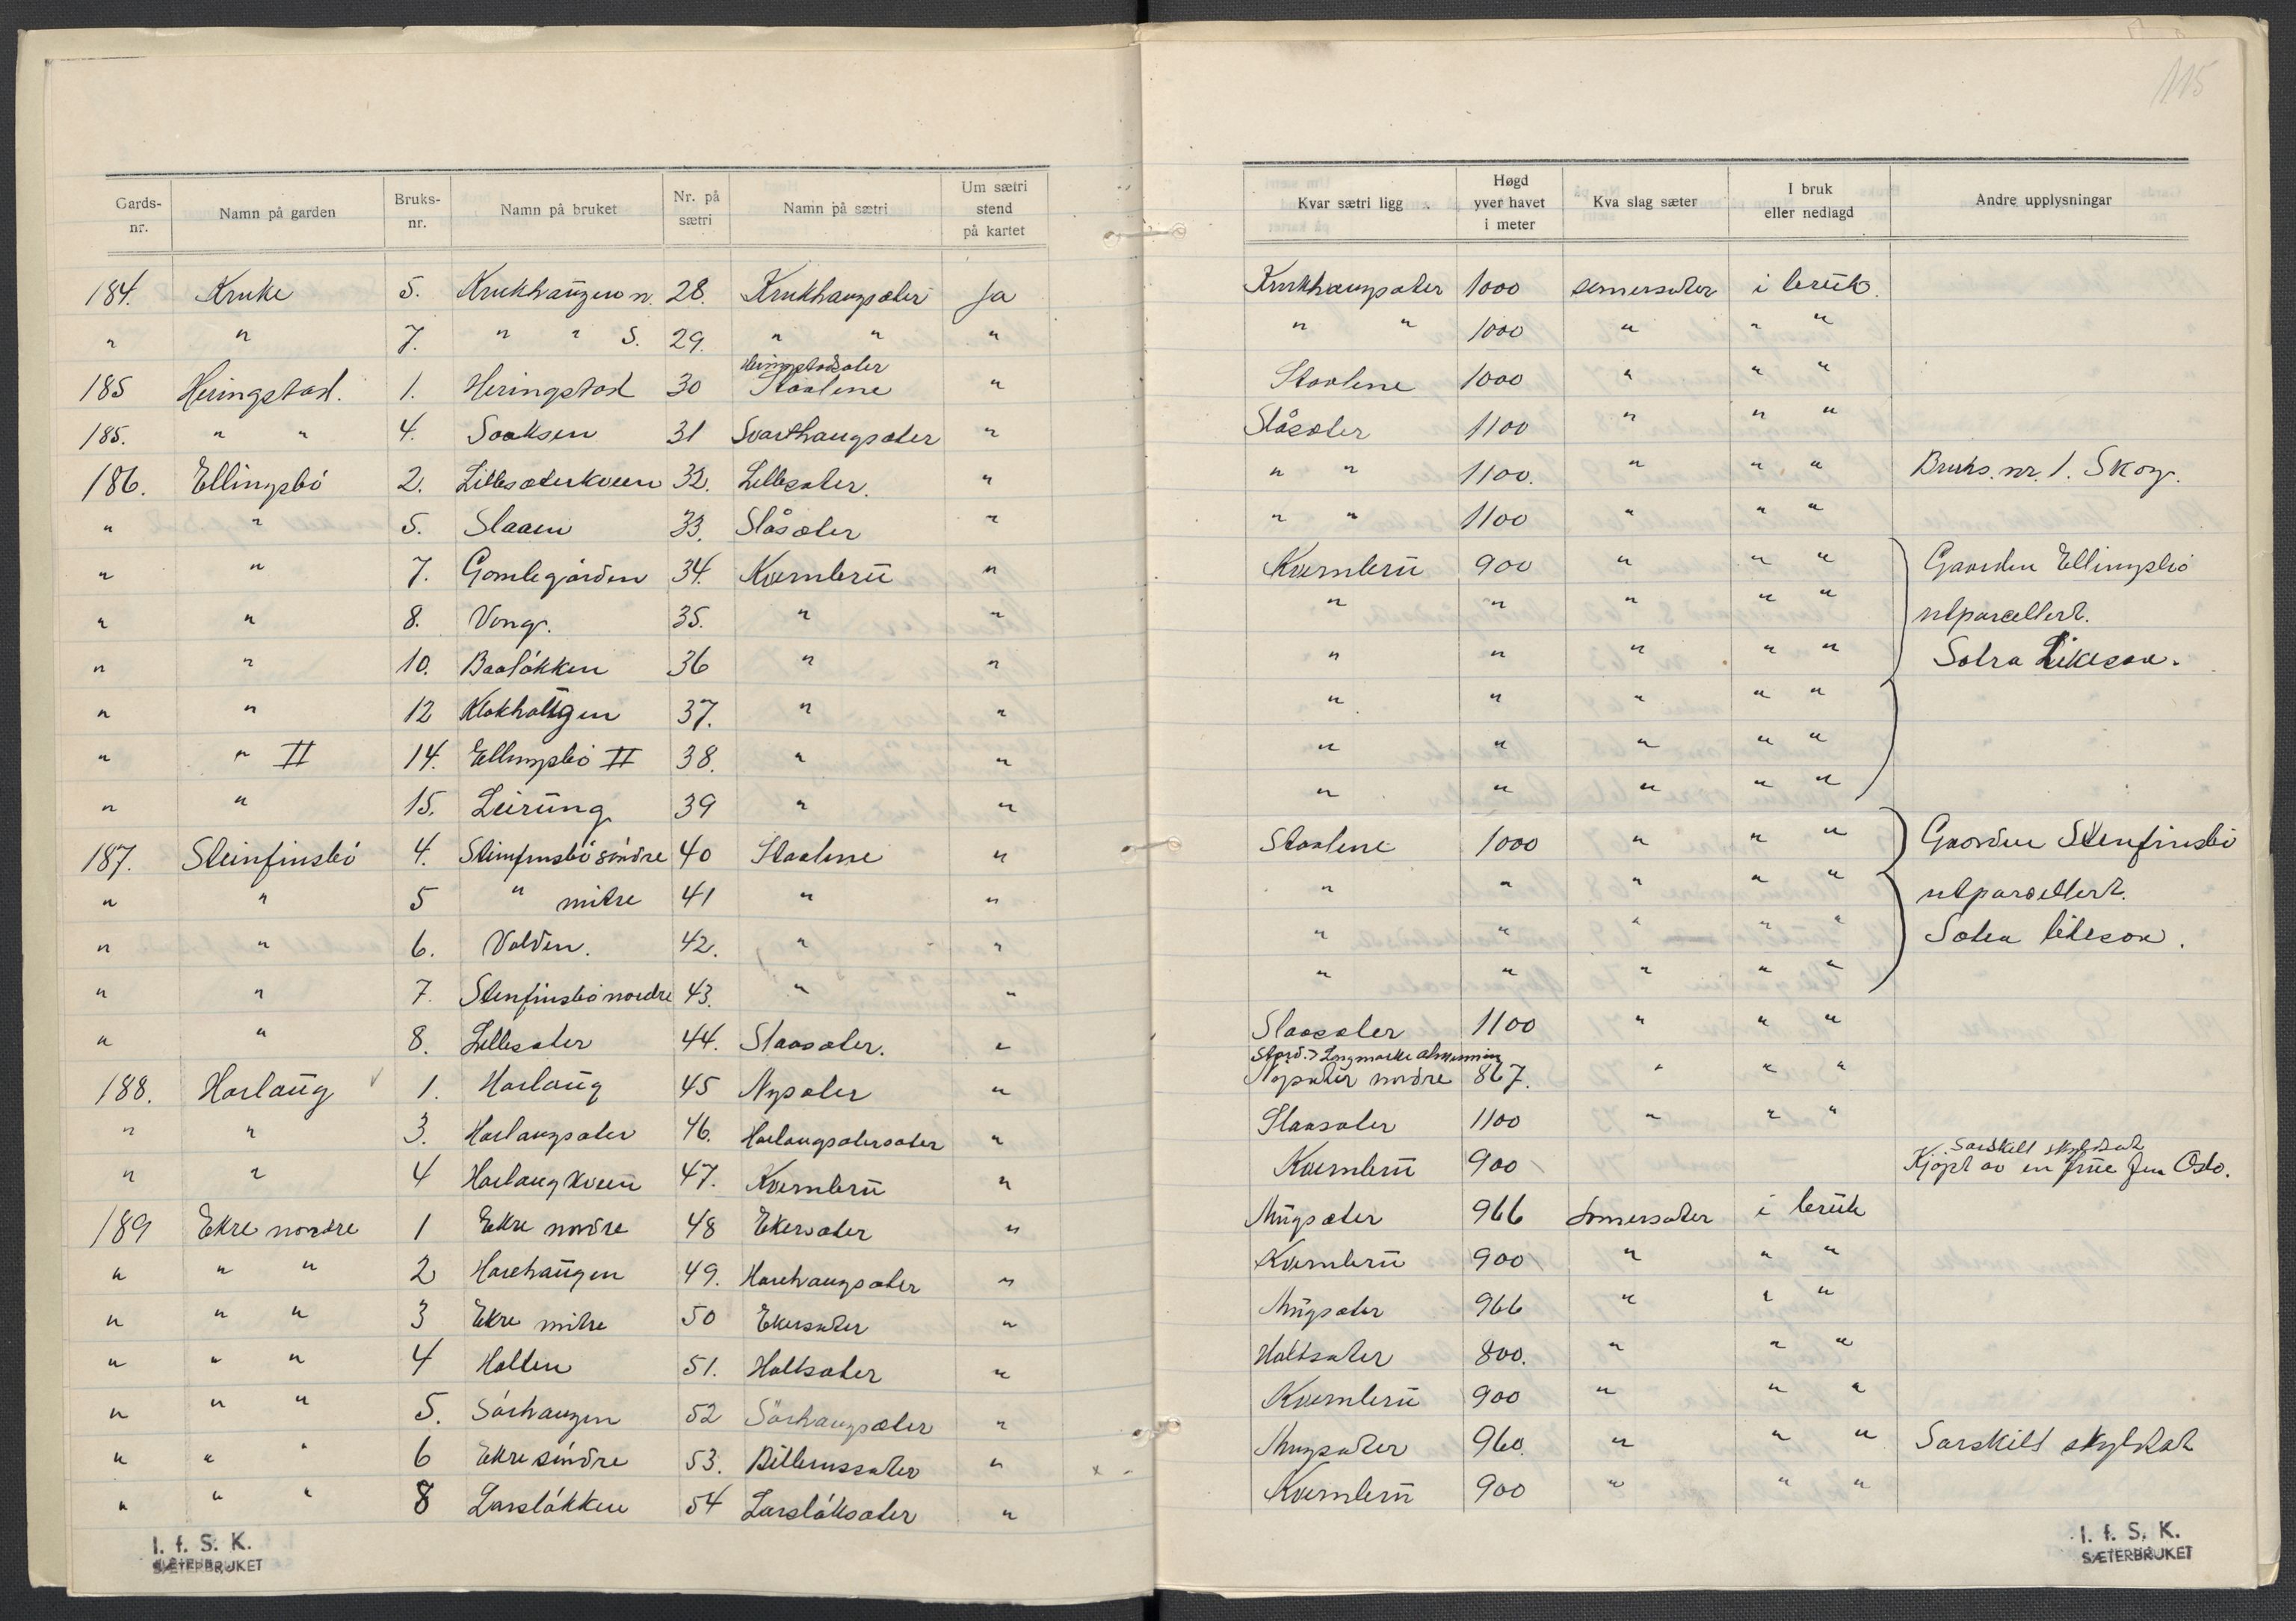 115
Gards-nr. | Namn på garden | Bruks-nr. | Namn på bruket | Nr. på sætri | Namn på sætri | Um sætri stend på kartet | Kvar sætri ligg | Høgd yver havet i meter | Kva slag sæter | I bruk eller nedlagd | Andre upplysningar
184. | Kruke | 5. | Krukhaugen n. | 28. | Krukhaugsæter | Ja | Krukhaugsæter | 1000 | somersæter | i bruk.
" | " | 7. | " " S. | 29. | " " | " | " " | 1000 | " | " "
185 | Heringstad. | 1. | Heringstad | 30 | Heringstadsæter Staalene | " | Staalene | 1000 | " | " "
185. | " " | 4. | Saaksen | 31 | Svarthaugsæter | " | Slåsæter | 1100 | " | " "
186. | Ellingsbö | 2. | Lillesæterkveen | 32. | Lillesæter. | " | " " | 1100. | " | " " | Bruks. nr. 1. Skog.
" | " | 5. | Slaaen | 33. | Slåsæter | " | " " | 1100 | " | " "
" | " | 7. | Gamlegården | 34. | Kvernbru | " | Kvernbru | 900 | " | " " | Gaarden Ellingsbö
" | " | 8. | Vang. | 35. | " | " | " | " | " | " " | utparcellert.
" | " | 10. | Baaløkken | 36 | " | " | " | " | " | " " | Sætra likesaa.
" | " | 12 | Klokhaugen | 37. | " | " | " | " | " | " "
" | " II | 14. | Ellingsbö II | 38. | " | " | " | " | " | " "
" | " | 15. | Leirung | 39 | " | " | " | " | " | " "
187. | Steinfinsbö | 4. | Steinfinsbö söndre | 40 | Staalene | " | Staalene | 1000 | " | " " | Gaarden Stenfinsbö
" | " | 5 | " mitre | 41 | " | " | " | " | " | " " | utparsellert.
" | " | 6. | Volden. | 42. | " | " | " | " | " | " " | Sætra likesaa.
" | " | 7. | Stenfinsbö nordre | 43. | " | " | " | " | " | " "
" | " | 8. | Lillesæter | 44. | Slaasæter. | " | Slaasæter | 1100 | " | " "
188. | Harlaug | 1. | Harlaug | 45 | Nysæter | " | Langmorke almenning Nysæter nordre | 867. | " | " "
" | " | 3. | Harlaugsæter | 46. | Harlaugsætersæter | " | Slaasæter | 1100 | " | " "
" | " | 4 | Harlaugkveen | 47. | Kvernbru | " | Kvernbru | 900 | Særskilt skyldsat Kjöpt av en frue fra Oslo.
189 | Ekre nordre | 1 | Ekre nordre | 48 | Ekersæter | " | Mugsæter | 966 | Somersæter | i bruk
" | " " | 2 | Harehaugen | 49. | Harehaugsæter | " | Kvernbru | 900 | " | " "
" | " " | 3 | Ekre mitre | 50 | Ekersæter | " | Mugsæter | 966 | " | " "
" | " " | 4 | Holten | 51. | Holtsæter | " | Holtsæter | 800. | " | " "
" | " " | 5. | Sörhaugen | 52 | Sörhaugsæter | " | Kvernbru | 900 | " | " "
" | " " | 6 | Ekre söndre | 53. | " | Mugsæter | 960. | " | " " | Særskilt skyldsat
" | " " | 8 | Larsløkken | 54 | Larsløksæter | " | Kvernbru | 900 | " | " "
I. f. S. K.
SÆTERBRUKET
I. f. S. K.
SÆTERBRUKET